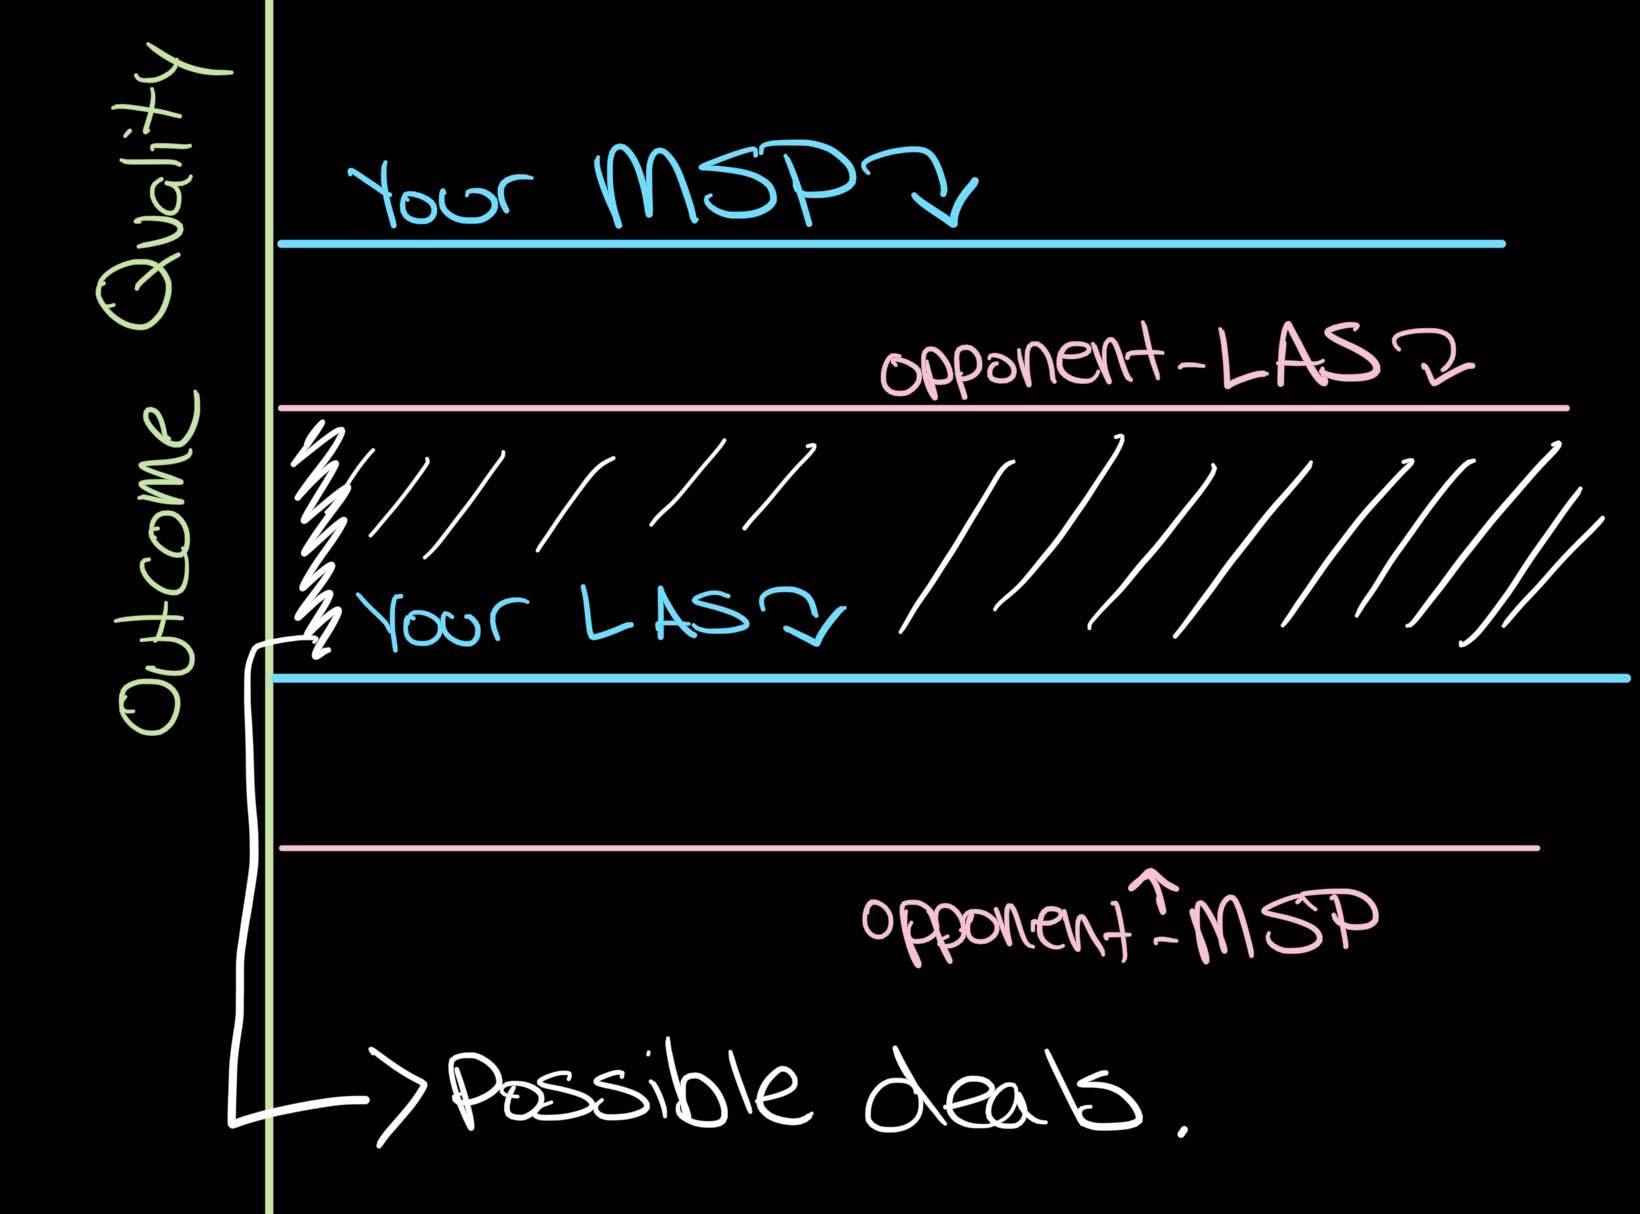 Outcome Quality
Your MSP
opponent-LAS
Your LAS
opponent-MSP
Possible deals.